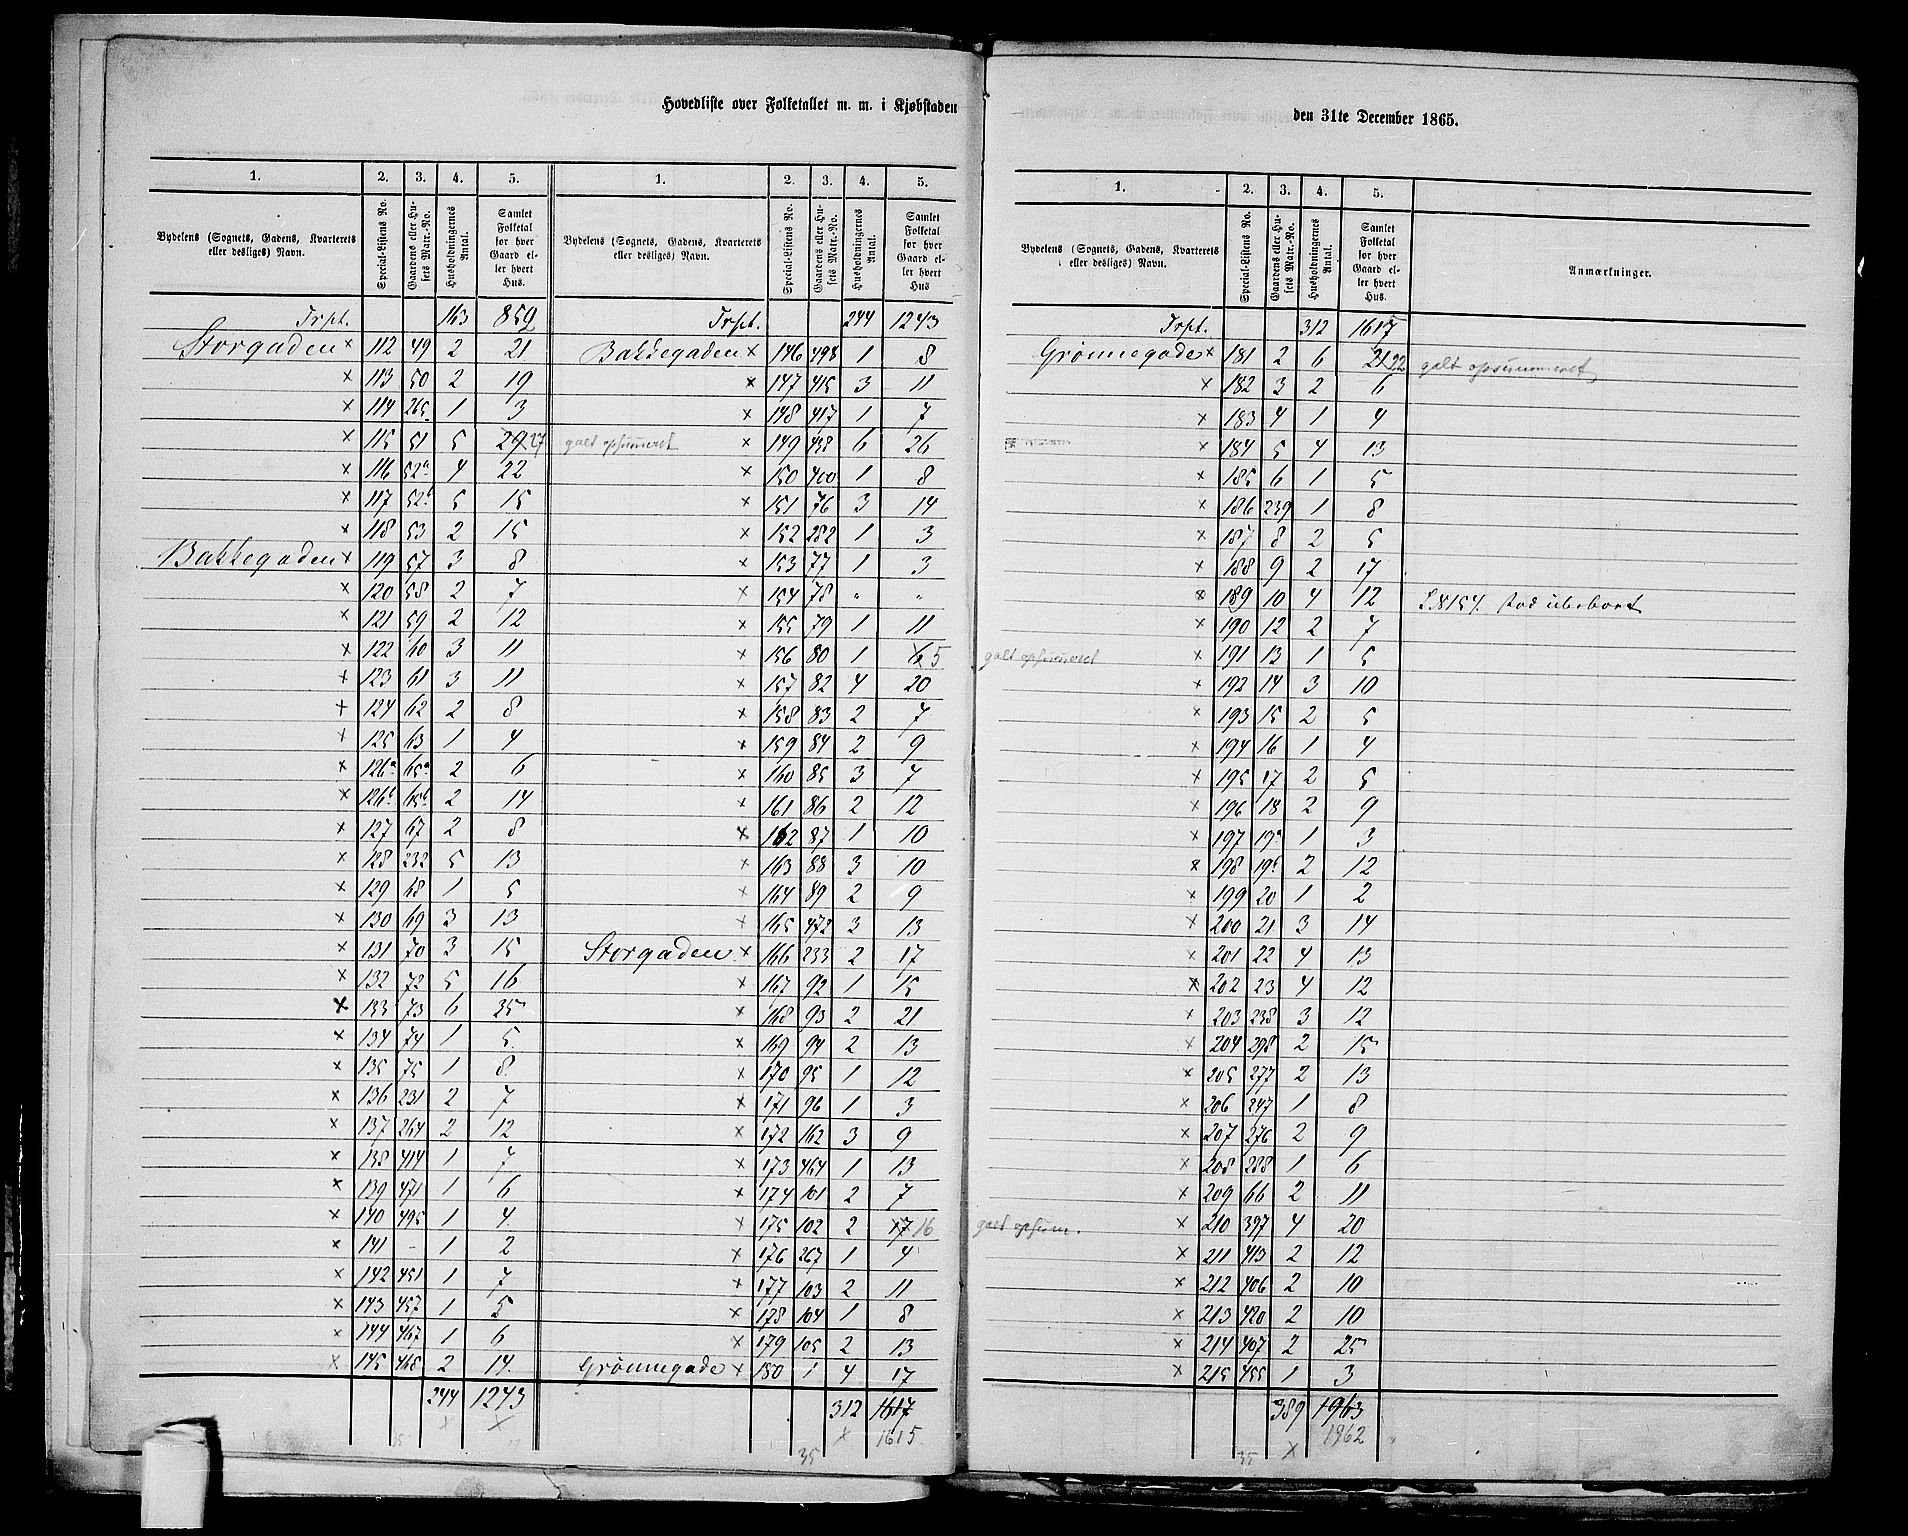 Hovedliste over Folketallet m. m. i Kjøbstaden
den 31te December 1865.
1. 2. 3. 4. 5. 1. 2. 3. 4. 5.
Bydelens (Sognets, Gadens, Kvarterets eller desliges) Navn. Special-Listens No. Gaardens eller Husets Matr.-No. Husholdningernes Antal. Samlet Folketal for hver Gaard eller hvert Hus. Bydelens (Sognets, Gadens, Kvarterets eller desliges) Navn. Special-Listens No. Gaardens eller Husets Matr.-No. Husholdningernes Antal. Samlet Folketal for hver Gaard eller hvert Hus
Trpt. 163 859
Storgaden × 112 49 2 21
× 113 50 2 19
× 114 265 1 3
× 115 51 5 29 27 galt opsumeret
× 116 52a 4 22
× 117 52b 5 15
× 118 53 2 15
Bakkegaden × 119 57 3 8
× 120 58 2 7
× 121 59 2 12
× 122 60 3 11
× 123 61 3 11
× 124 62 2 8
× 125 63 1 4
× 126a 65a 2 6
× 126b 65b 2 14
× 127 67 2 8
× 128 232 5 13
× 129 68 1 5
× 130 69 3 13
× 131 70 3 15
× 132 72 5 16
× 133 73 6 35
× 134 74 1 5
× 135 75 1 8
× 136 231 2 7
× 137 264 2 12
× 138 414 1 7
× 139 471 1 6
× 140 495 1 4
× 141 - 1 2
× 142 451 1 7
× 143 457 1 5
× 144 467 1 6
× 145 468 2 14
244 1243
Trpt. 244 1243
Bakkegaden × 146 498 1 8
× 147 415 3 11
× 148 417 1 7
× 149 438 6 26
× 150 400 1 8
× 151 76 3 14
× 152 282 1 3
× 153 77 1 3
× 154 78 " "
× 155 79 1 11
× 156 80 1 6 5 galt opsumeret
× 157 82 4 20
× 158 83 2 7
× 159 84 2 9
× 160 85 3 7
× 161 86 2 12
× 162 87 1 10
× 163 88 3 10
× 164 89 2 9
× 165 472 3 13
Storgaden × 166 233 2 17
× 167 92 1 15
× 168 93 2 21
× 169 94 2 13
× 170 95 1 12
× 171 96 1 3
× 172 162 3 9
× 173 464 1 13
× 174 101 2 7
× 175 102 2 17 16 galt opsum.
× 176 267 1 4
× 177 103 2 11
× 178 104 1 8
× 179 105 2 13
Grønnegade × 180 1 4 17
312 1617
× 1615
35
1. 2. 3. 4. 5.
Bydelens (Sognets, Gadens, Kvarterets eller desliges) Navn. Special-Listens No. Gaardens eller Husets Matr.-No. Husholdningernes Antal. Samlet Folketal for hver Gaard eller hvert Hus. Anmærkninger.
Trpt. 312 1617
Grønnegade × 181 2 6 21 22 galt opsummeret
× 182 3 2 6
× 183 4 1 4
× 184 5 4 13
× 185 6 1 5
× 186 239 1 8
× 187 8 2 5
× 188 9 2 17
× 189 10 4 12 154 Stod ubeboet
× 190 12 2 7
× 191 13 1 5
× 192 14 3 10
× 193 15 2 5
× 194 16 1 4
× 195 17 2 5
× 196 18 2 9
× 197 19a 1 3
× 198 19b 2 12
× 199 20 1 2
× 200 21 3 14
× 201 22 4 13
× 202 23 4 12
× 203 238 3 12
× 204 298 2 15
× 205 277 2 13
× 206 247 1 8
× 207 276 2 9
× 208 288 1 6
× 209 66 2 11
× 210 397 4 20
× 211 413 2 12
× 212 406 2 10
× 213 420 2 10
× 214 407 2 25
× 215 455 1 3
389 1963
× 1962
35